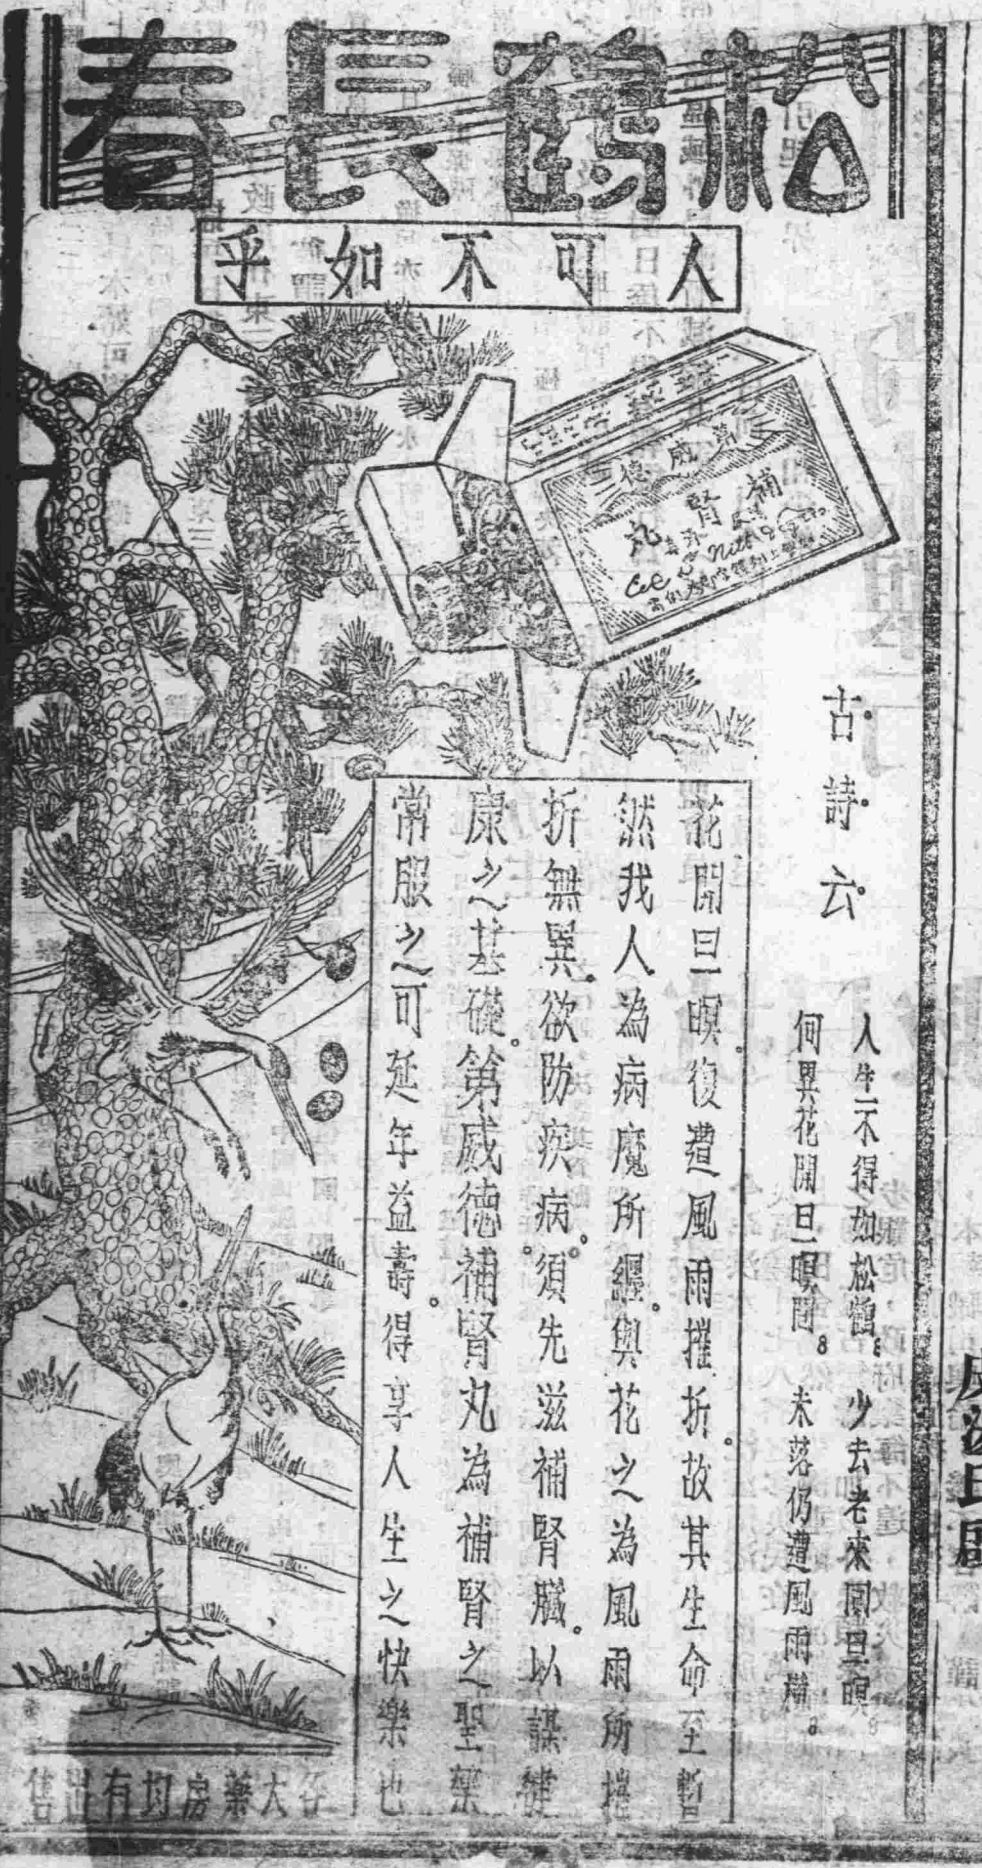 松鶴長春
人可不如乎
第威德
補腎丸
古詩云
人生不得如松鶴
少去老來同旦暝
何異花開日暝間
未落仍遭風雨摧
花開旦暝復遭風雨摧折故其生命至暫
然我人為病魔所纏與花之為風雨所摧
折無異欲防疾病須先滋補腎臟以謀健
康之基礎第威德補腎丸為補腎之聖藥
常服之可延年益壽得享人生之快樂也
各大藥房均有出售